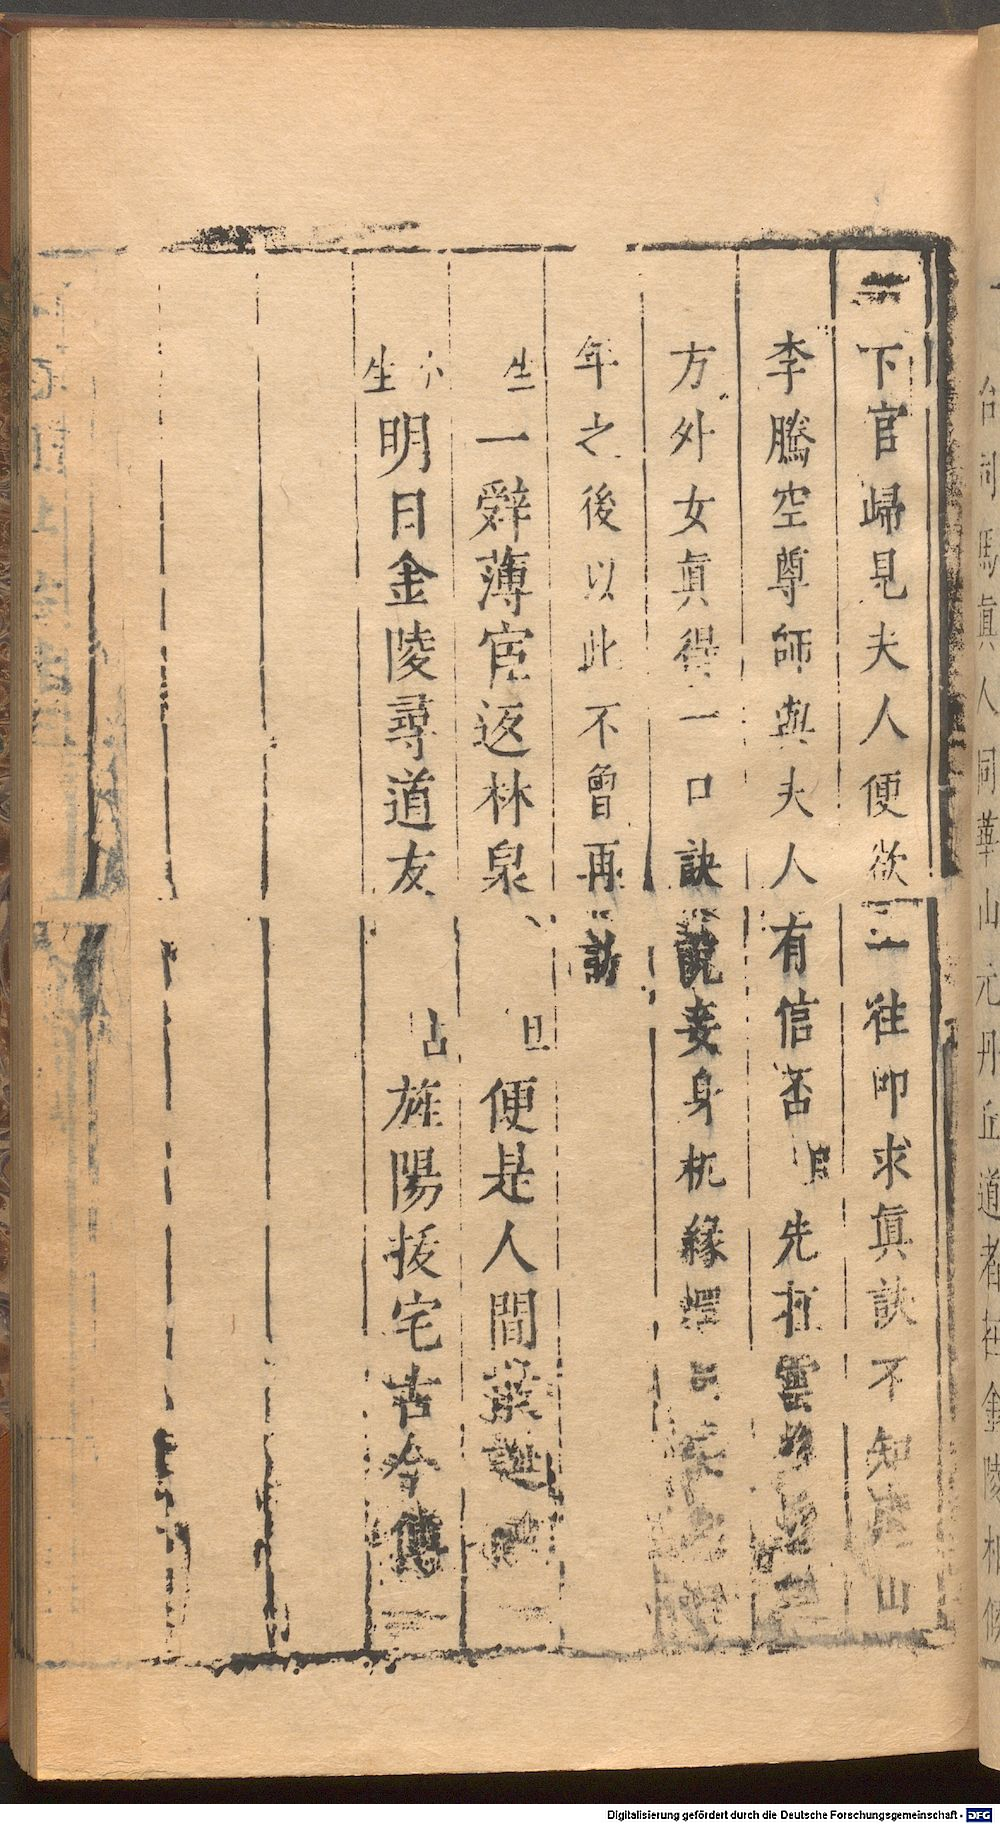 下官歸見夫人便欲一往叩求眞訣不知山
李騰空尊師與夫人有信否旦先在雲
方外女眞得一口訣說妾身机緣
年之後以此不曾再訪
生一辭薄宦返林泉旦便是人間
小生明日金陵尋道友占旌陽拔宅古今傳
台司馬眞人同華山元丹丘道者在金陵相候
Digitalisierung gefördert durch die Deutsche Forschungsgemeinschaft - DFG